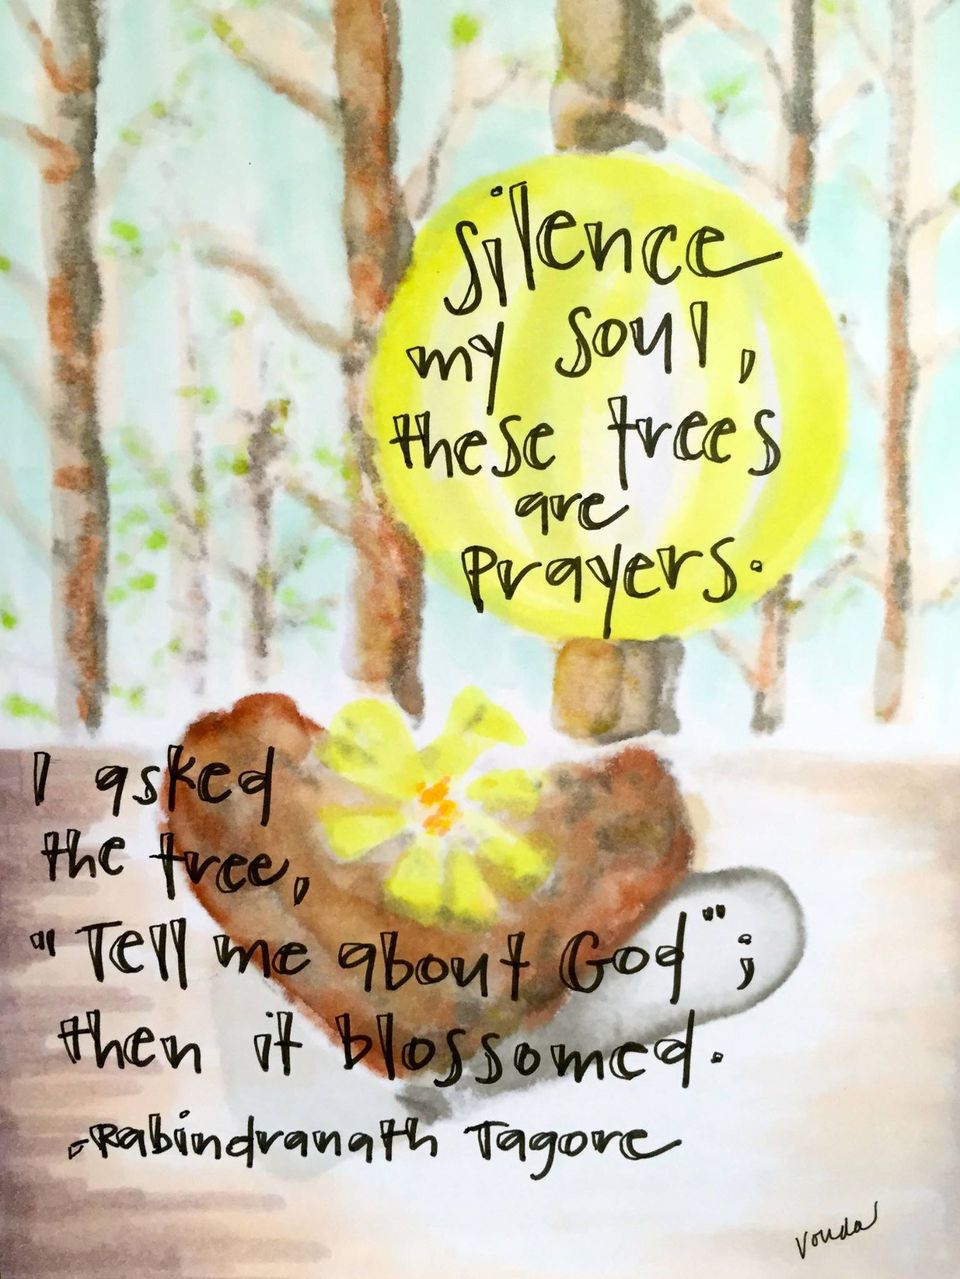 silence
my soul,
these trees
are
prayers.
I asked
the tree,
"Tell me about God";
then it blossomed.
-Rabindranath Tagore
Vonda